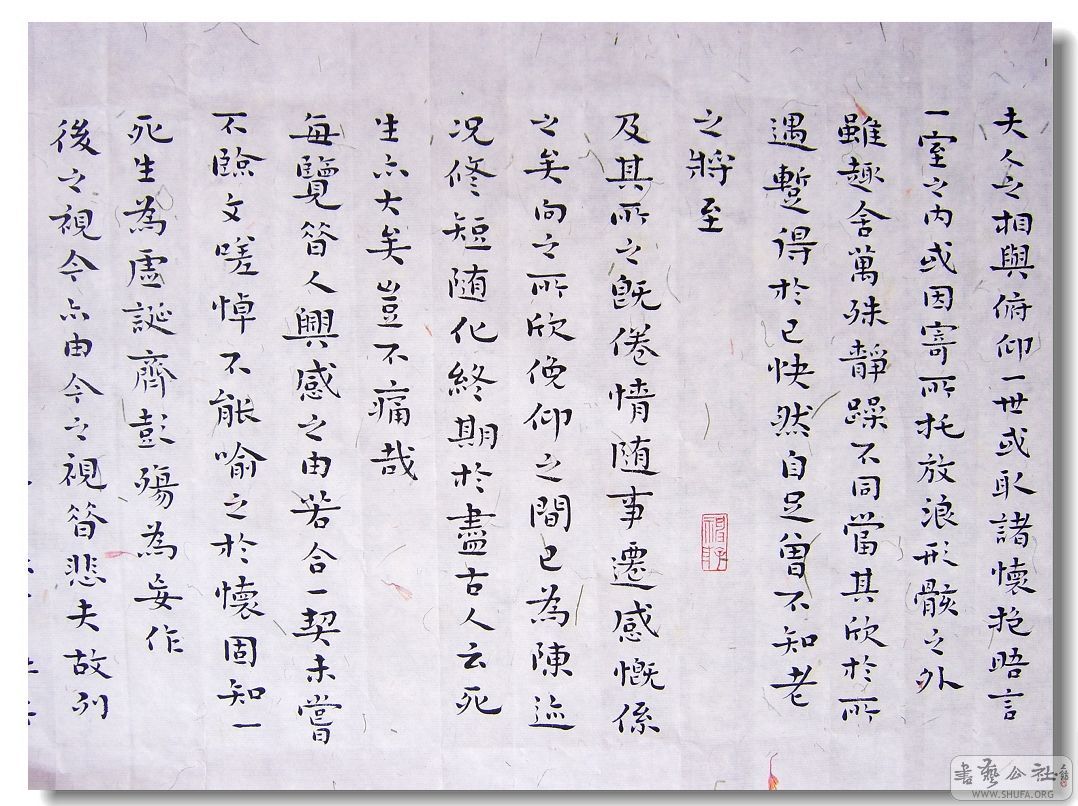 夫人之相與俯仰一世或取諸懷抱晤言
一室之內或因寄所托放浪形骸之外
雖趣舍萬殊靜躁不同當其欣於所
遇蹔得於己快然自足曾不知老
之將至
及其所之既倦情随事遷感慨係
之矣向之所欣俛仰之間已為陳迹
况修短随化終期於盡古人云死
生亦大矣豈不痛哉
每覽昔人興感之由若合一契未嘗
不臨文嗟悼不能喻之於懷固知一
死生為虛誕齊彭殤為妄作
後之視今亦由今之視昔悲夫故列
書藝公社
WWW.SHUFA.ORG